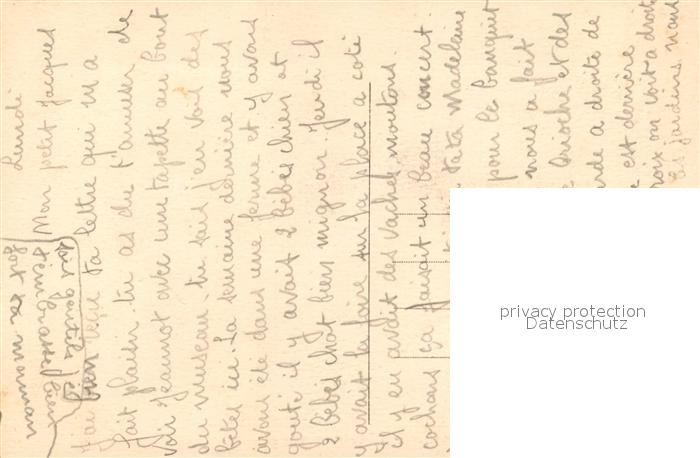 Lundi
Mon petit Jacques
J'ai bien reçu ta lettre qui m'a
fait plaisir tu as du t'amuser de
voir Jeannot avec une tapette au bout
du museau. tu sais j'en vois des
bêtes ici. La semaine dernière nous
avons été dans une ferme et y avait
gouté il y avait 2 bébés chien et
2 bébés chat bien mignon. Jeudi il
y avait la foire sur la place a coté
il y en avait des vaches moutons.
cochons ça faisait un beau concert.
tata Madelaine
pour le banquet
nous a fait
brioche et des
a droite de
est derrière
croix on voit a droite
les jardins, nous
sois gentils je
t'embrasse bien
fort ta maman
privacy protection
Datenschutz